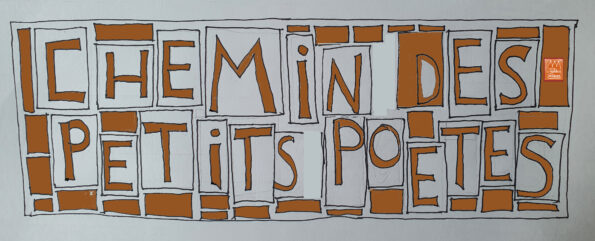 CHEMiN DES
PETiTS POETES